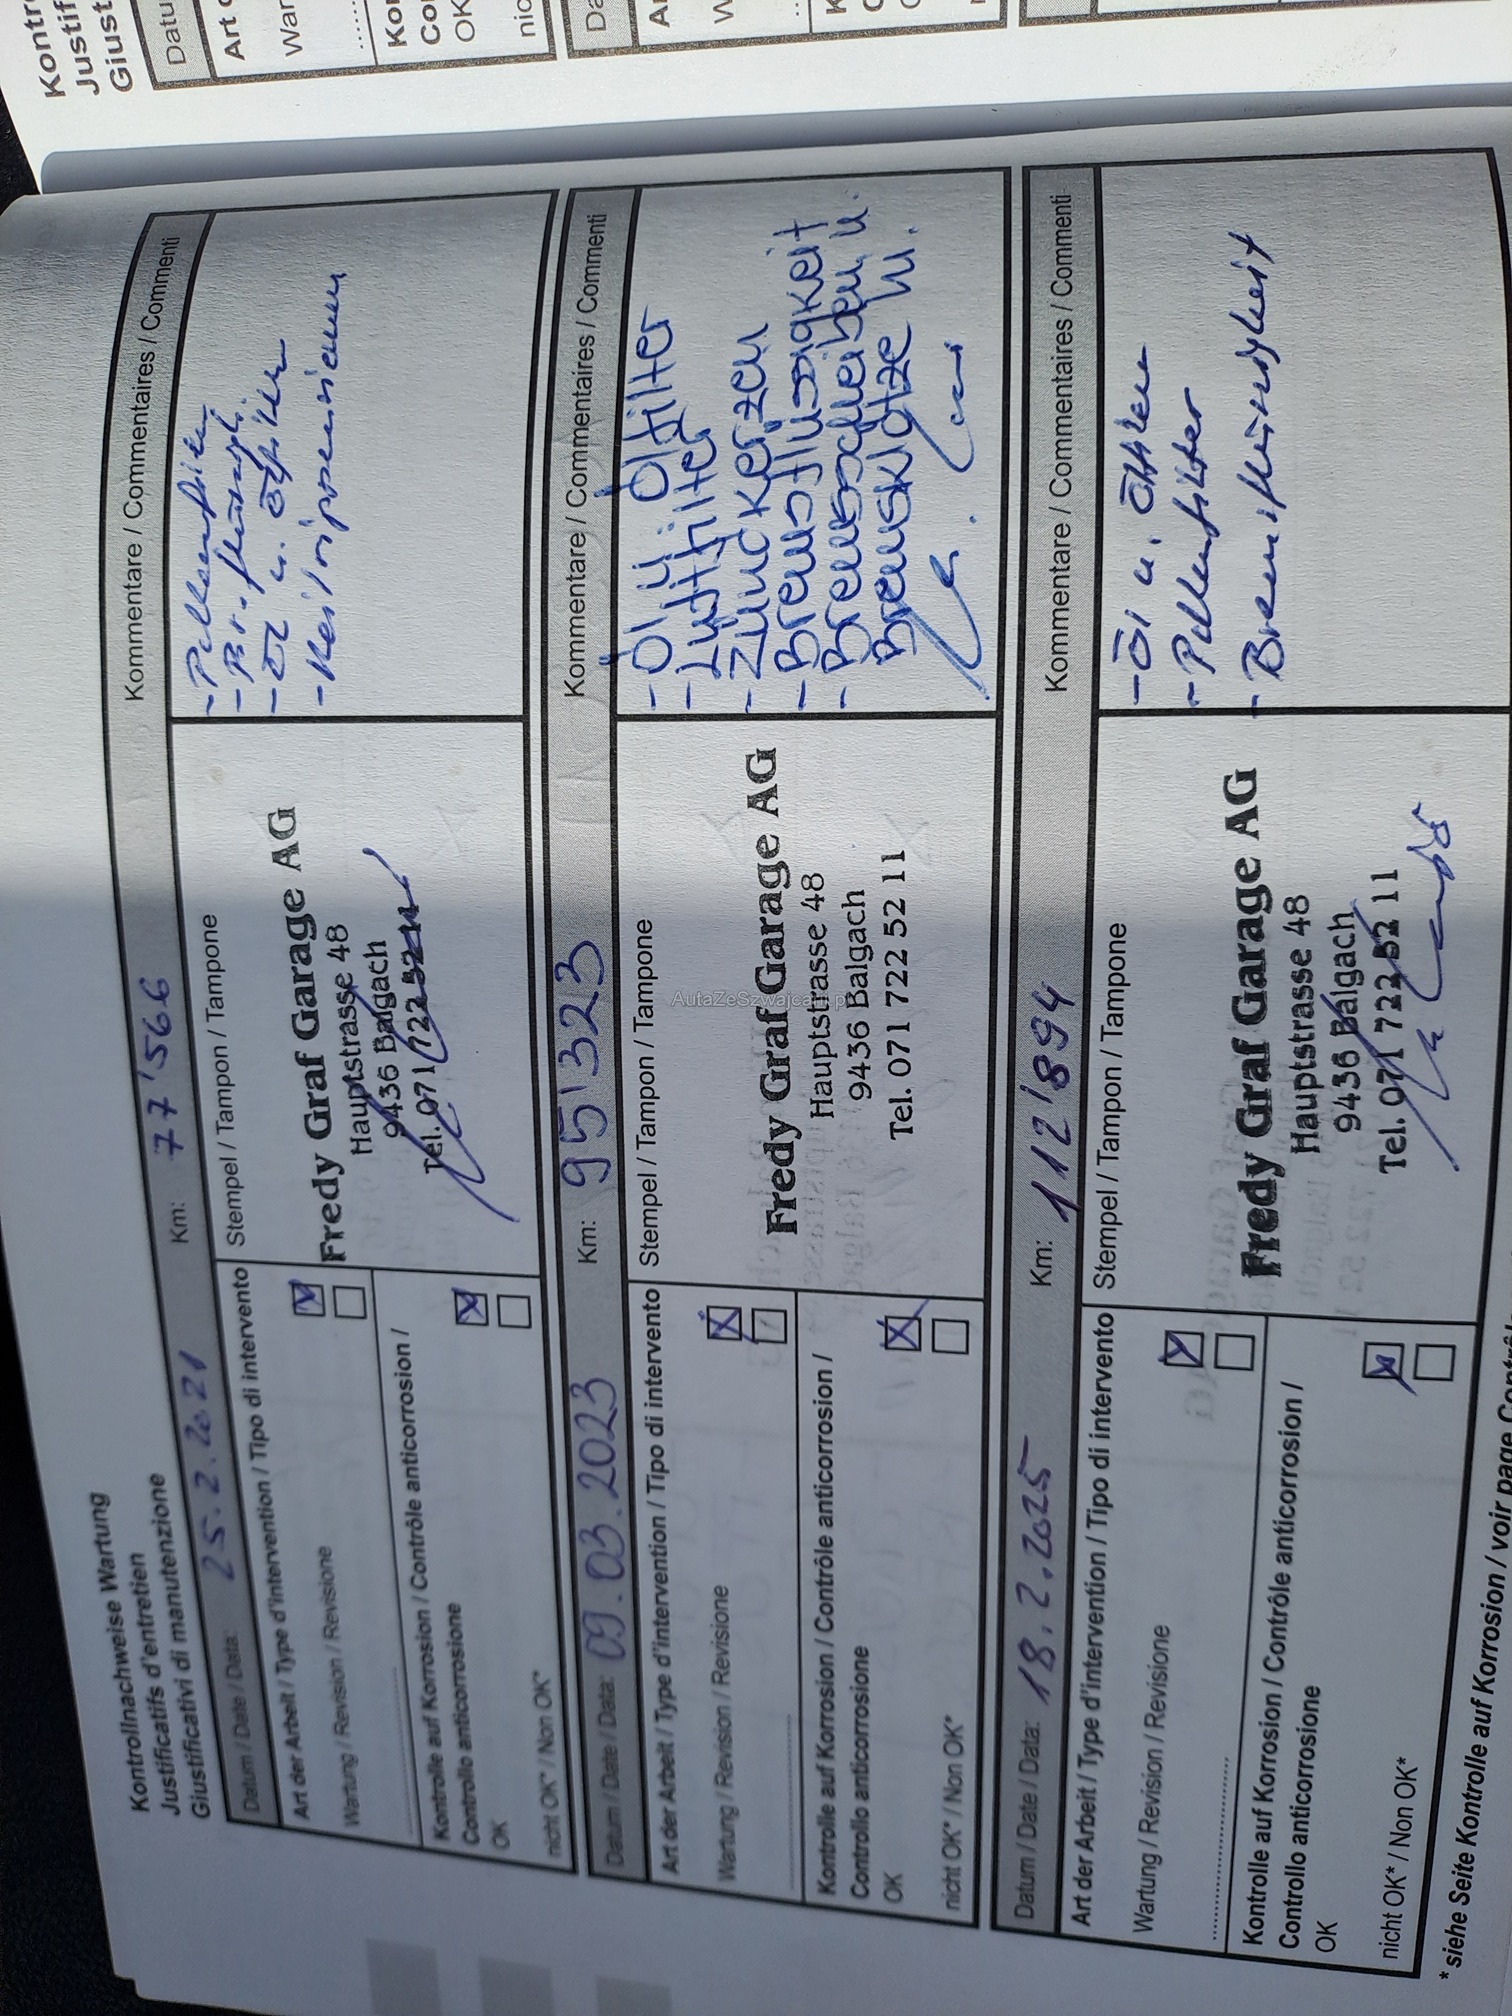 Kontrollnachweise Wartung
Justificatifs d'entretien
Giustificativi di manutenzione
Datum / Date / Data: 25.2.2021 Km: 77'566 Kommentare / Commentaires / Commenti
Art der Arbeit / Type d'intervention / Tipo di intervento
Stempel / Tampon / Tampone
Wartung / Revision / Revisione
Kontrolle auf Korrosion / Contrôle anticorrosion /
Controllo anticorrosione
OK
nicht OK* / Non OK*
Fredy Graf Garage AG
Hauptstrasse 48
9436 Balgach
Tel. 071 722 52 11
- Pollenfilter
- Br.flüssigk.
- Öl u. Ölfilter
- Keilrippenriemen
Datum / Date / Data: 09.03.2023 Km: 95'323 Kommentare / Commentaires / Commenti
Art der Arbeit / Type d'intervention / Tipo di intervento
Stempel / Tampon / Tampone
Wartung / Revision / Revisione
Kontrolle auf Korrosion / Contrôle anticorrosion /
Controllo anticorrosione
OK
nicht OK* / Non OK*
Fredy Graf Garage AG
Hauptstrasse 48
9436 Balgach
Tel. 071 722 52 11
- Öl u Ölfilter
- Luftfilter
- Zündkerzen
- Bremsflüssigkeit
- Bremsscheiben u.
Bremsklötze
AutaZeSzwajcarii.pl
Datum / Date / Data: 18.2.2025 Km: 112'894 Kommentare / Commentaires / Commenti
Art der Arbeit / Type d'intervention / Tipo di intervento
Stempel / Tampon / Tampone
Wartung / Revision / Revisione
Kontrolle auf Korrosion / Contrôle anticorrosion /
Controllo anticorrosione
OK
nicht OK* / Non OK*
Fredy Graf Garage AG
Hauptstrasse 48
9436 Balgach
Tel. 071 722 52 11
- Öl u. Ölfilter
- Pollenfilter
- Bremsflüssigkeit
* siehe Seite Kontrolle auf Korrosion / voir page
Kontr
Justif
Giust
Datu
Art
War
Kon
Co
OK
nic